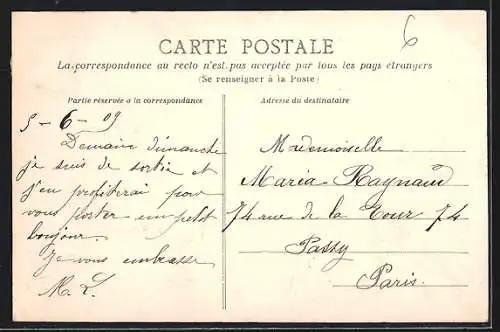 6
CARTE POSTALE
La correspondance au recto n'est pas acceptée par tous les pays étrangers
(Se renseigner à la Poste)
Partie réservée a la correspondance
5-6-09
Demain dimanche
je suis de sortie et
j'en profiterai pour
vous porter un petit
bonjour.
Je vous embrasse
M. L.
Adresse du destinataire
Mademoiselle
Maria Raynaud
74 rue de la Tour 74
Passy
Paris.